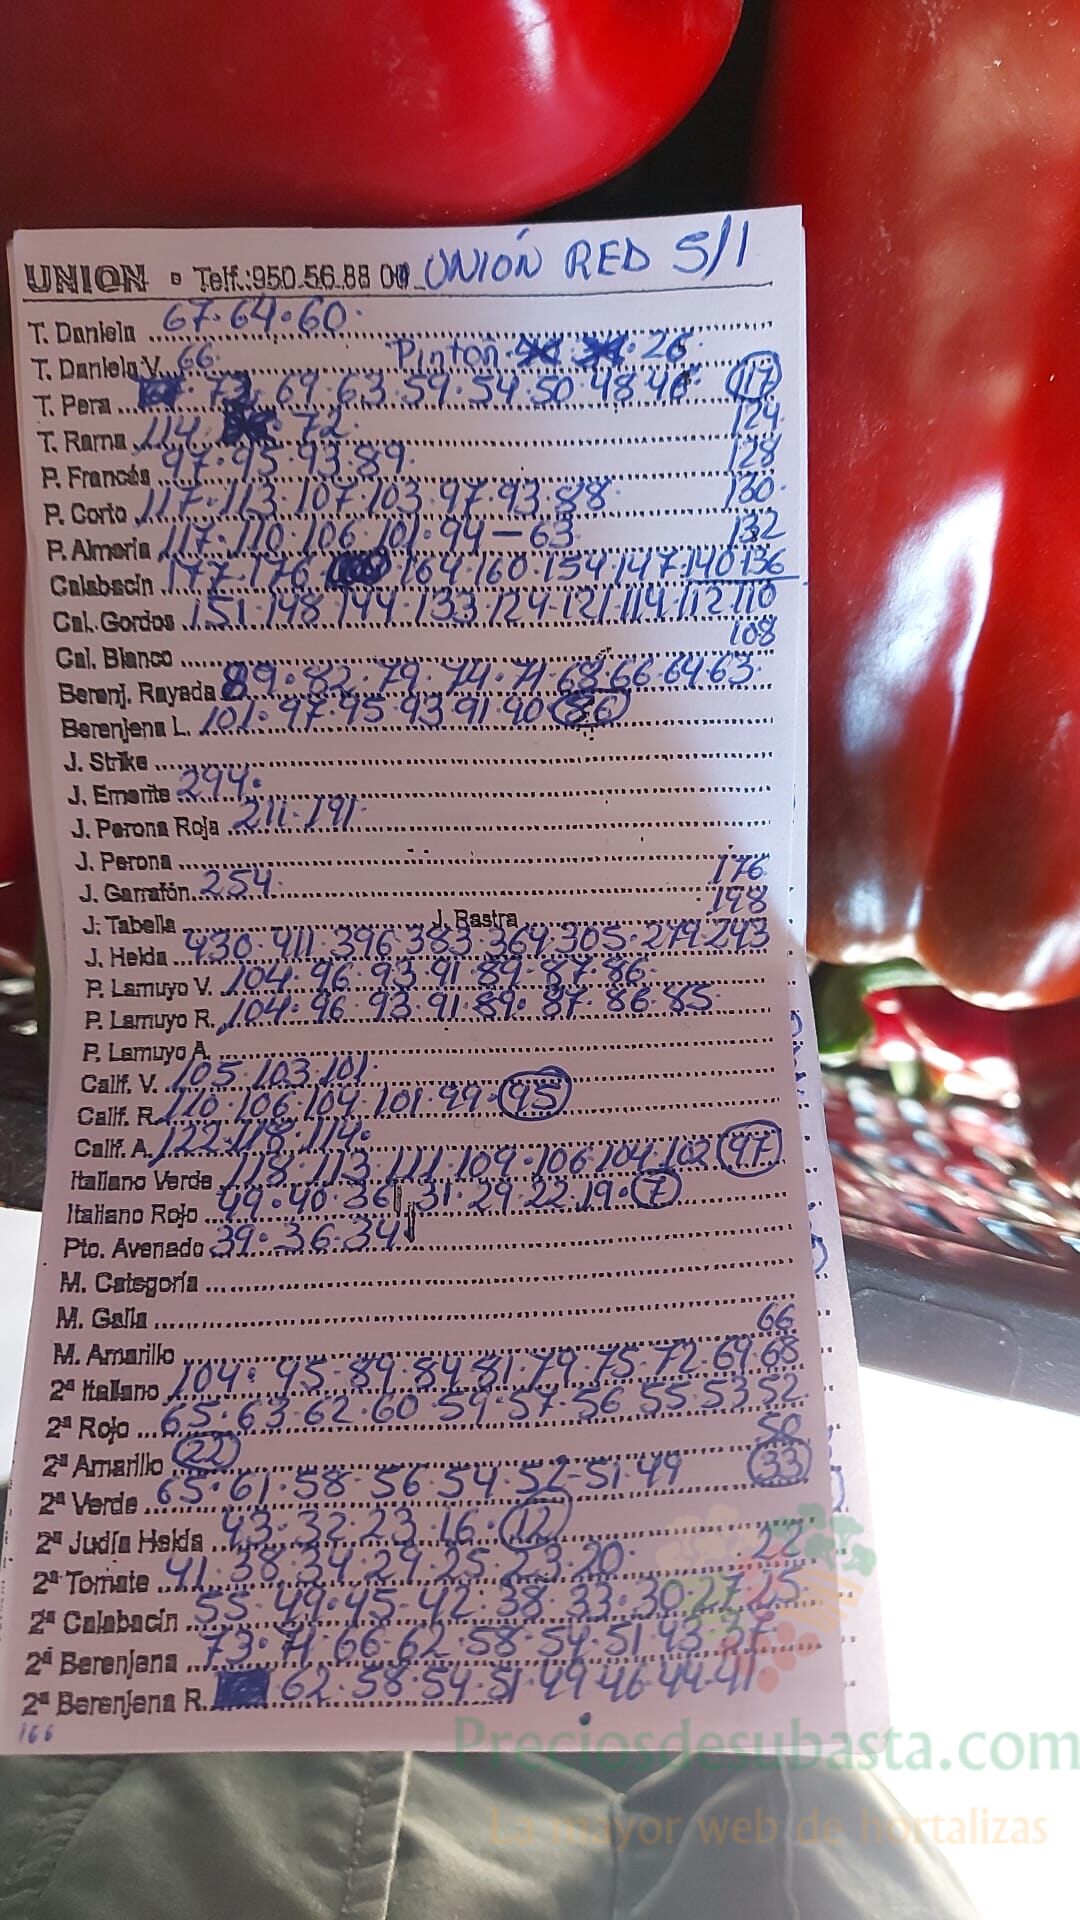 UNION Telf.:950.56.88 00 UNIÓN RED 5/1
T. Daniela 67·64·60·
T. Daniela V. 66 Pinton 26·
T. Pera 72 69·63·59·54·50·48·46· 117
T. Rama 114 72· 124·
P. Francés 97·95·93·89· 128
P. Corto 117·113·107·103·97·93·88· 130·
P. Almería 117·110·106·101·94—63 132
Calabacín 177·176 164·160·154·147·140·136
Cal. Gordos 151·148·144·133·124·121·114·112·110
Cal. Blanco 108
Berenj. Rayada 89·82·79·74·71·68·66·64·63·
Berenjena L. 101·97·95·93·91·90·86
J. Strike
J. Emerite 294·
J. Perona Roja 211·191·
J. Perona
J. Garrafón 254· 176
J. Tabella J. Rastra 198
J. Helda 430·411·396·383·364·305·279·243
P. Lamuyo V. 104·96·93·91·89·87·86·
P. Lamuyo R. 104·96·93·91·89·87·86·85·
P. Lamuyo A.
Calif. V. 105·103·101·
Calif. R. 110·106·104·101·99·95
Calif. A. 122·118·114·
Italiano Verde 118·113·111·109·106·104·102 97
Italiano Rojo 49·40·36 31·29·22·19·7
Pto. Avenado 39·36·34
M. Categoría
M. Galia
M. Amarillo 66
2ª Italiano 104·95·89·84·81·79·75·72·69·68
2ª Rojo 65·63·62·60·59·57·56·55·53·52
2ª Amarillo 22 50
2ª Verde 65·61·58·56·54·52·51·49 33
2ª Judía Helda 43·32·23·16·12
2ª Tomate 41·38·34·29·25·23·20· 22
2ª Calabacín 55·49·45·42·38·33·30·27·25
2ª Berenjena 73·71·66·62·58·54·51·43·37
2ª Berenjena R. 62·58·54·51·49·46·44·41
166
Preciosdesubasta.com
La mayor web de hortalizas